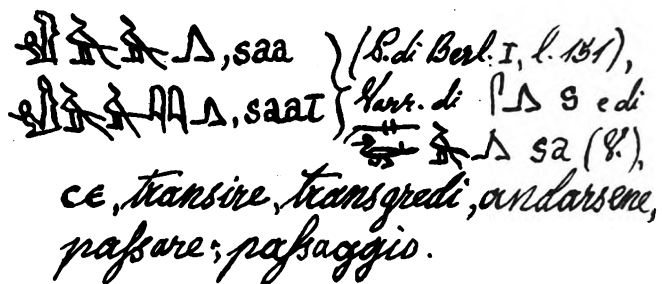 , saa (P. di Berl. I, l. 151),
, saaI Varr. di s e di
sa (V.),
ⲥⲉ, transire, transgredi, andarsene,
paſsare; paſsaggio.